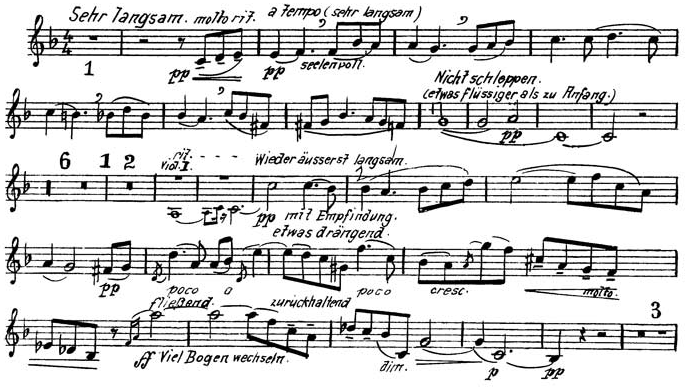 Sehr langsam. molto rit. a tempo (sehr langsam)
1 pp pp seelenvoll.
Nicht schleppen.
(etwas flüssiger als zu Anfang.)
pp
6 1 2 rit. - - - - Wieder äusserst langsam.
Viol. I.
pp mit Empfindung.
etwas drängend.
pp poco a poco cresc. molto.
fließend. zurückhaltend 3
ff Viel Bogen wechseln. dim. p pp